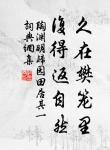 久在樊笼里
复得返自然
陶渊明归园田居其一
词典网集